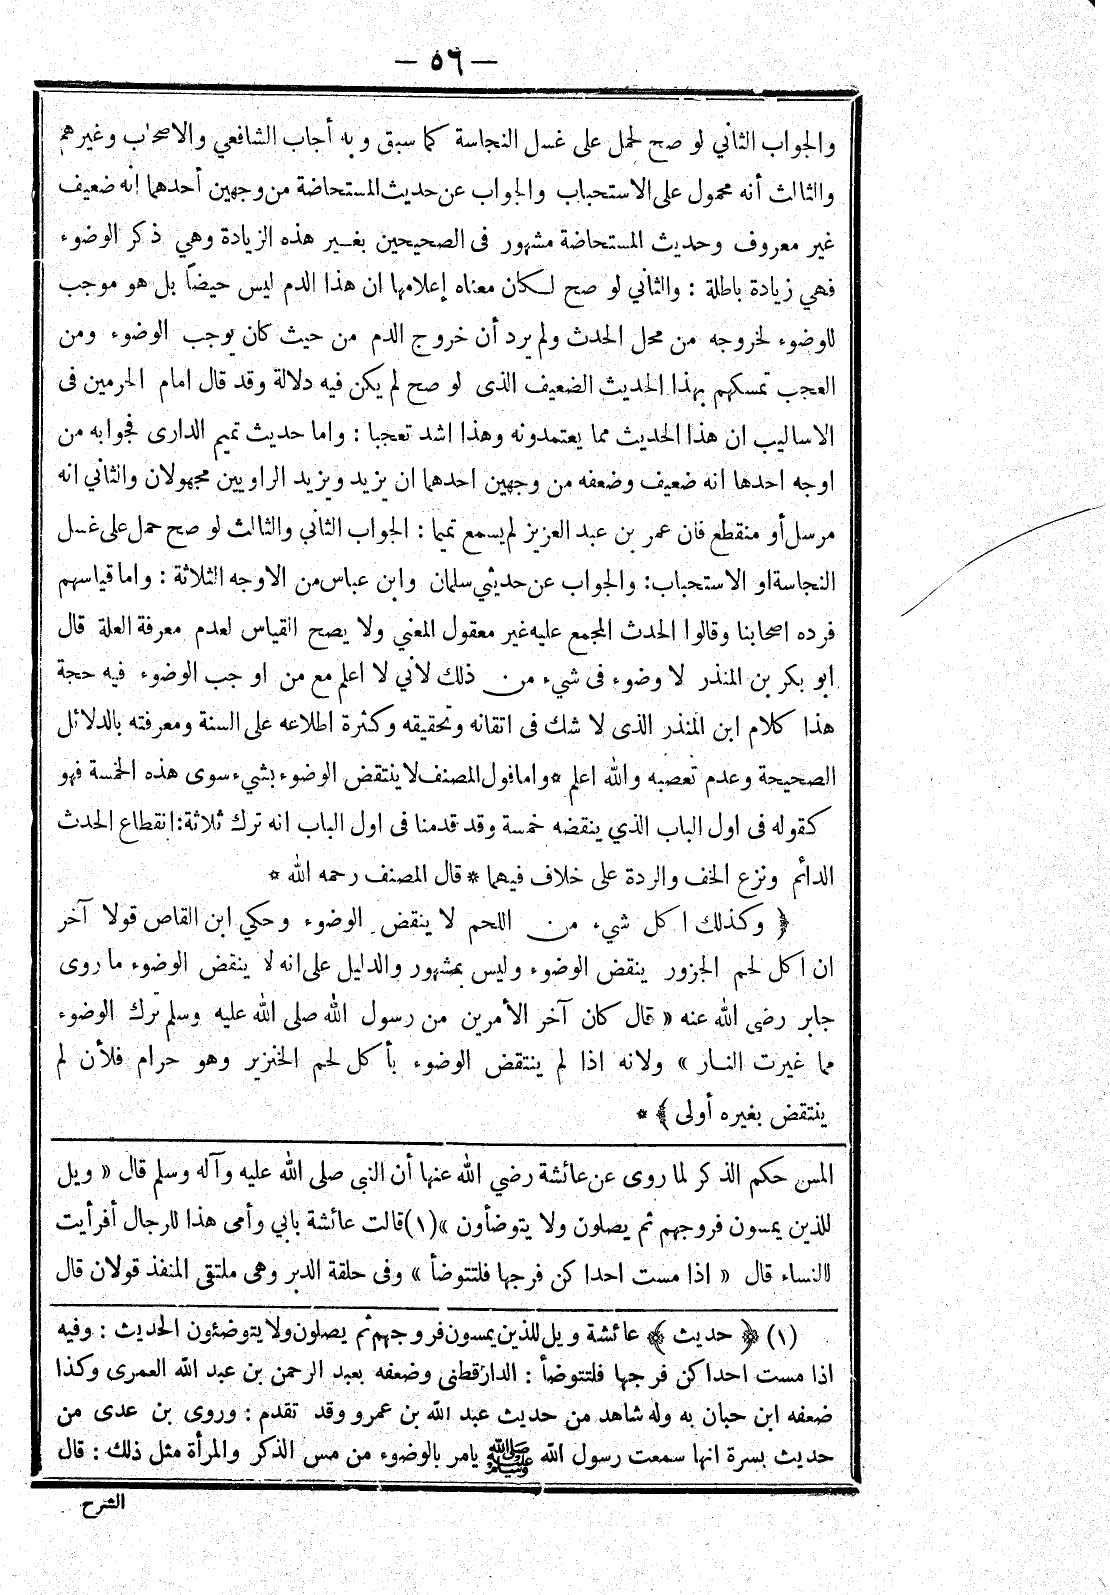 — ٥٦ —
والجواب الثاني لو صح لحمل على غسل النجاسة كما سبق وبه أجاب الشافعي والاصحاب وغيرهم
والثالث أنه محمول على الاستحباب والجواب عن حديث المستحاضة من وجهين أحدهما انه ضعيف
غير معروف وحديث المستحاضة مشهور فى الصحيحين بغير هذه الزيادة وهي ذكر الوضوء
فهي زيادة باطلة : والثاني لو صح لكان معناه إعلامها ان هذا الدم ليس حيضاً بل هو موجب
للوضوء لخروجه من محل الحدث ولم يرد أن خروج الدم من حيث كان يوجب الوضوء ومن
العجب تمسكهم بهذا الحديث الضعيف الذى لو صح لم يكن فيه دلالة وقد قال امام الحرمين فى
الاساليب ان هذا الحديث مما يعتمدونه وهذا اشد تعجبا : واما حديث تميم الدارى فجوابه من
اوجه احدها انه ضعيف وضعفه من وجهين احدهما ان يزيد ويزيد الراويين مجهولان والثاني انه
مرسل أو منقطع فان عمر بن عبد العزيز لم يسمع تميما : الجواب الثاني والثالث لو صح حمل على غسل
النجاسة او الاستحباب : والجواب عن حديثي سلمان وابن عباس من الاوجه الثلاثة : واما قياسهم
فرده اصحابنا وقالوا الحدث المجمع عليه غير معقول المعني ولا يصح القياس لعدم معرفة العلة قال
ابو بكر بن المنذر لا وضوء فى شيء من ذلك لاني لا اعلم مع من اوجب الوضوء فيه حجة
هذا كلام ابن المنذر الذى لا شك فى اتقانه وتحقيقه وكثرة اطلاعه على السنة ومعرفته بالدلائل
الصحيحة وعدم تعصبه والله اعلم * واما قول المصنف لا ينتقض الوضوء بشيء سوى هذه الخمسة فهو
كقوله فى اول الباب الذي ينقضه خمسة وقد قدمنا فى اول الباب انه ترك ثلاثة : انقطاع الحدث
الدائم ونزع الخف والردة على خلاف فيهما * قال المصنف رحمه الله *
﴿ وكذلك اكل شيء من اللحم لا ينقض الوضوء وحكي ابن القاص قولا آخر
ان اكل لحم الجزور ينقض الوضوء وليس بمشهور والدليل على انه لا ينقض الوضوء ما روى
جابر رضى الله عنه « قال كان آخر الأمرين من رسول الله صلى الله عليه وسلم ترك الوضوء
مما غيرت النار » ولانه اذا لم ينتقض الوضوء بأكل لحم الخنزير وهو حرام فلأن لم
ينتقض بغيره أولى ﴾ *
المس حكم الذكر لما روى عن عائشة رضي الله عنها أن النبى صلى الله عليه وآله وسلم قال « ويل
للذين يمسون فروجهم ثم يصلون ولا يتوضأون » (١) قالت عائشة بابي وأمى هذا للرجال أفرأيت
للنساء قال « اذا مست احداكن فرجها فلتتوضأ » وفى حلقة الدبر وهى ملتقى المنفذ قولان قال
(١) ﴿ حديث ﴾ عائشة ويل للذين يمسون فروجهم ثم يصلون ولا يتوضئون الحديث : وفيه
اذا مست احداكن فرجها فلتتوضأ : الدارقطنى وضعفه بعبد الرحمن بن عبد الله العمرى وكذا
ضعفه ابن حبان به وله شاهد من حديث عبد الله بن عمرو وقد تقدم : وروى بن عدى من
حديث بسرة انها سمعت رسول الله ﷺ يامر بالوضوء من مس الذكر والمرأة مثل ذلك : قال
الشرح